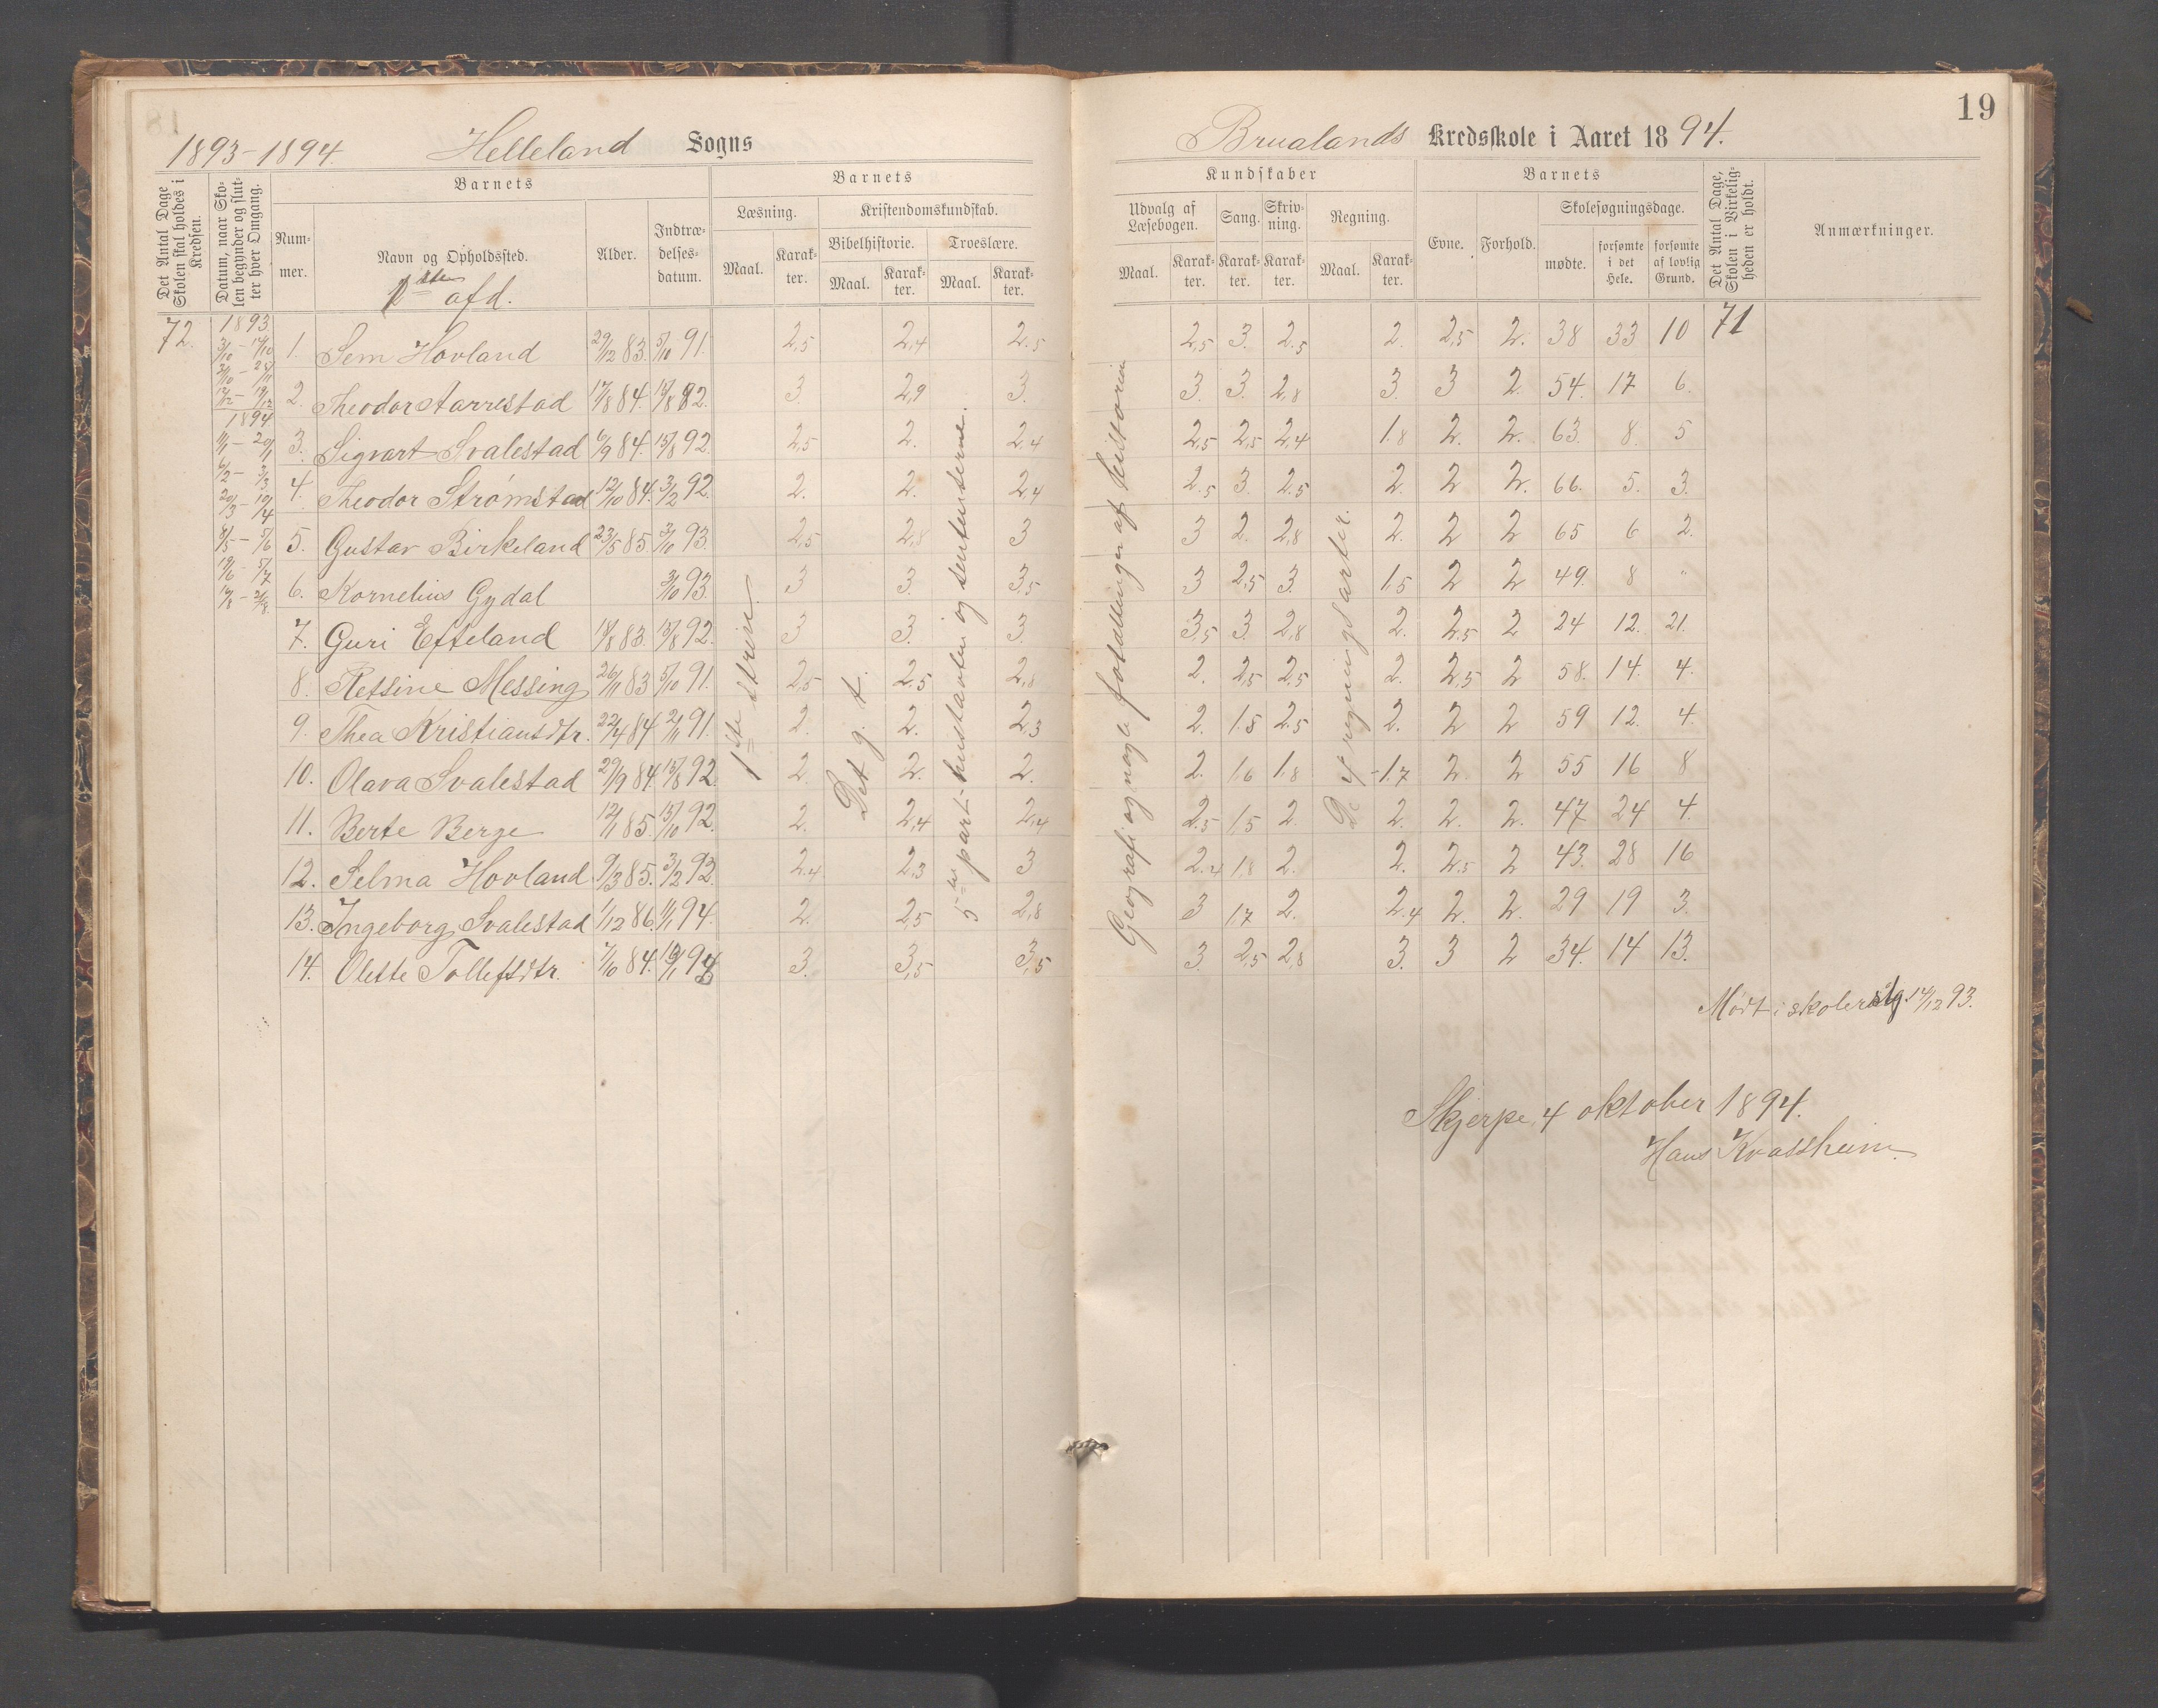 19
1893-1894 Helleland Sogns
Brualands Kredsskole i Aaret 1894.
Det Antal Dage Skolen skal holdes i Kredsen.
Datum, naar Skolen begynder og slutter hver Omgang.
Barnets
Nummer.
Navn og Opholdssted.
1ste afd.
Alder.
Indtrædelsesdatum.
Barnets
Læsning.
Maal. Karakter.
Kristendomskundskab.
Bibelhistorie. Troeslære.
Maal. Karakter. Maal. Karakter.
Kundskaber
Udvalg af Læsebogen. Sang. Skrivning. Regning.
Maal. Karakter. Karakter. Karakter. Maal. Karakter.
Barnets
Evne. Forhold.
Skolesøgningsdage.
mødte. forsømte i det Hele. forsømte af lovlig Grund.
Det Antal Dage, Skolen i Virkeligheden er holdt.
Anmærkninger.
72. 1893. 1894
1. Sem Hovland 29/12 83. 5/10 91. 2,5 2,4 2.5 2,5 3. 2.5 2. 2,5 2. 38 33 10 71
2. Theodor Aarrestad 17/8 84. 19/8 92. 3. 2,9 3. 3. 3. 2,8 3. 3 2 54. 17 6.
3. Sigvart Svalestad 6/9 84. 15/8 92. 2,5 2. 2.4 2,5 2,5 2,4 1.8 2. 2. 63. 8. 5
4. Theodor Strømstad 12/10 84. 3/2 92. 2. 2. 2,4 2.5 3. 2.5 2. 2 2. 66. 5. 3.
5. Gustav Birkeland 23/5 85. 3/10 93. 2,5 2,8 3 3 2. 2,8 2. 2 2 65 6 2.
6. Kornelius Gydal 3/10 93. 3 3. 3,5 3 2,5 3. 1.5 2 2 49. 8 "
7. Guri Efteland 18/8 83. 15/8 92. 3 3. 3. 3,5 3. 2,8 2. 2.5 2 24 12. 21.
8. Retsine Messing 26/11 83 5/10 91. 2,5 2.5 2,8 2. 2,5 2.5 2. 2,5 2 58. 14. 4.
9. Thea Kristiansdtr. 22/4 84 2/11 91. 2. 2. 2,3 2. 1.8 2.5 2. 2 2 59 12. 4.
10. Olava Svalestad 29/9 84. 15/8 92. 2. 2. 2. 2. 1,6 1,8 1.7 2. 2 55 16 8
11. Berte Berge 12/1 85. 15/10 92. 2. 2,4 2,4 2.5 1,5 2. 2. 2. 2. 47 24 4.
12. Selma Hovland 9/3 85. 3/2 92. 2.4 2,3 3 2.4 1.8 2. 2. 2.5 2 43. 28 16
13. Ingeborg Svalestad 1/12 86. 11/1 94. 2. 2,5 2,8 3 1,7 2. 2.4 2. 2. 29 19 3.
14. Olette Tollefsdtr. 7/10 84. 3. 3,5 3,5 3. 2,5 2,8 3. 3 2 34. 14 13.
1ste trin.
Det g. t.
5te part-
Geografi og nogle fortællinger af historien
De 4 regningsarter.
Mødt i skolen
Skjerpe, 4 oktober 1894.
Hans Kvassheim.